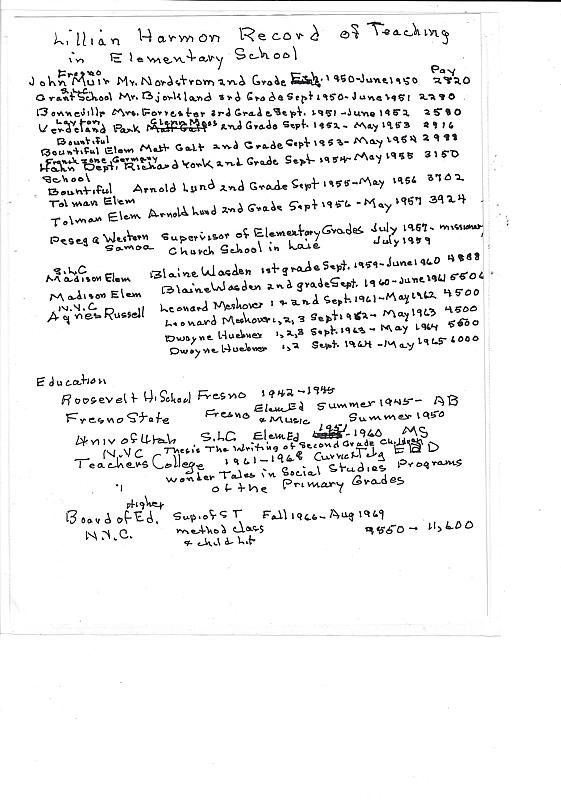 Lillian Harmon Record of Teaching
in Elementary School
Pay
Fresno
John Muir Mr. Nordstrom 2nd Grade 1950-June 1950 2820
S.L.C
Grant School Mr. Bjorkland 3rd Grade Sept 1950-June 1951 2290
Bonneville Mrs. Forrester 3rd Grade Sept. 1951-June 1952 2580
Layton Glenn Moss
Verdeland Park 2nd Grade Sept. 1952-May 1953 2916
Bountiful
Bountiful Elem Matt Galt 2nd Grade Sept 1953-May 1954 2988
Frank zone, Germany
Hahn Dept. Richard York 2nd Grade Sept 1954-May 1955 3150
School
Bountiful Arnold Lund 2nd Grade Sept 1955-May 1956 3702
Tolman Elem
Tolman Elem Arnold Lund 2nd Grade Sept 1956-May 1957 3924
Pesega Western Supervisor of Elementary Grades July 1957- missionary
Samoa Church School in Laie July 1959
S.L.C
Madison Elem Blaine Wasden 1st grade Sept. 1959-June 1960 4888
Madison Elem Blaine Wasden 2nd grade Sept. 1960-June 1961 5506
N.Y.C
Agnes Russell Leonard Meshover 1 & 2nd Sept 1961-May 1962 4500
Leonard Meshover 1, 2, 3 Sept 1962-May 1963 4500
Dwayne Huebner 1, 2, 3 Sept. 1963-May 1964 5600
Dwayne Huebner 1, 2 Sept. 1964-May 1965 6000
Education
Roosevelt Hi School Fresno 1942-1945
Fresno State Fresno Elem Ed Summer 1945- AB
& Music Summer 1950
Univ of Utah S.L.C Elem Ed 1951-1960 MS
Thesis The Writing of Second Grade Children
N.Y.C
Teachers College 1961-1968 Curric & Tchg EDD
Wonder Tales in Social Studies Programs
" of the Primary Grades
Higher
Board of Ed. Sup. of ST Fall 1966-Aug 1969
N.Y.C. method class 9550-11,600
& child lit